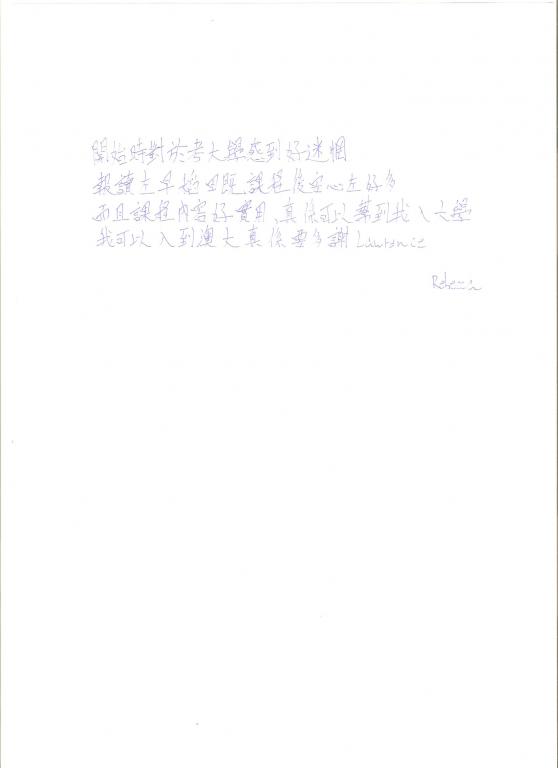 開始時對於考大學感到好迷惘
報讀左早 既課程後安心左好多
而且課程內容好實用,真係可以幫到我入大學
我可以入到澳大真係要多謝 Lawrence